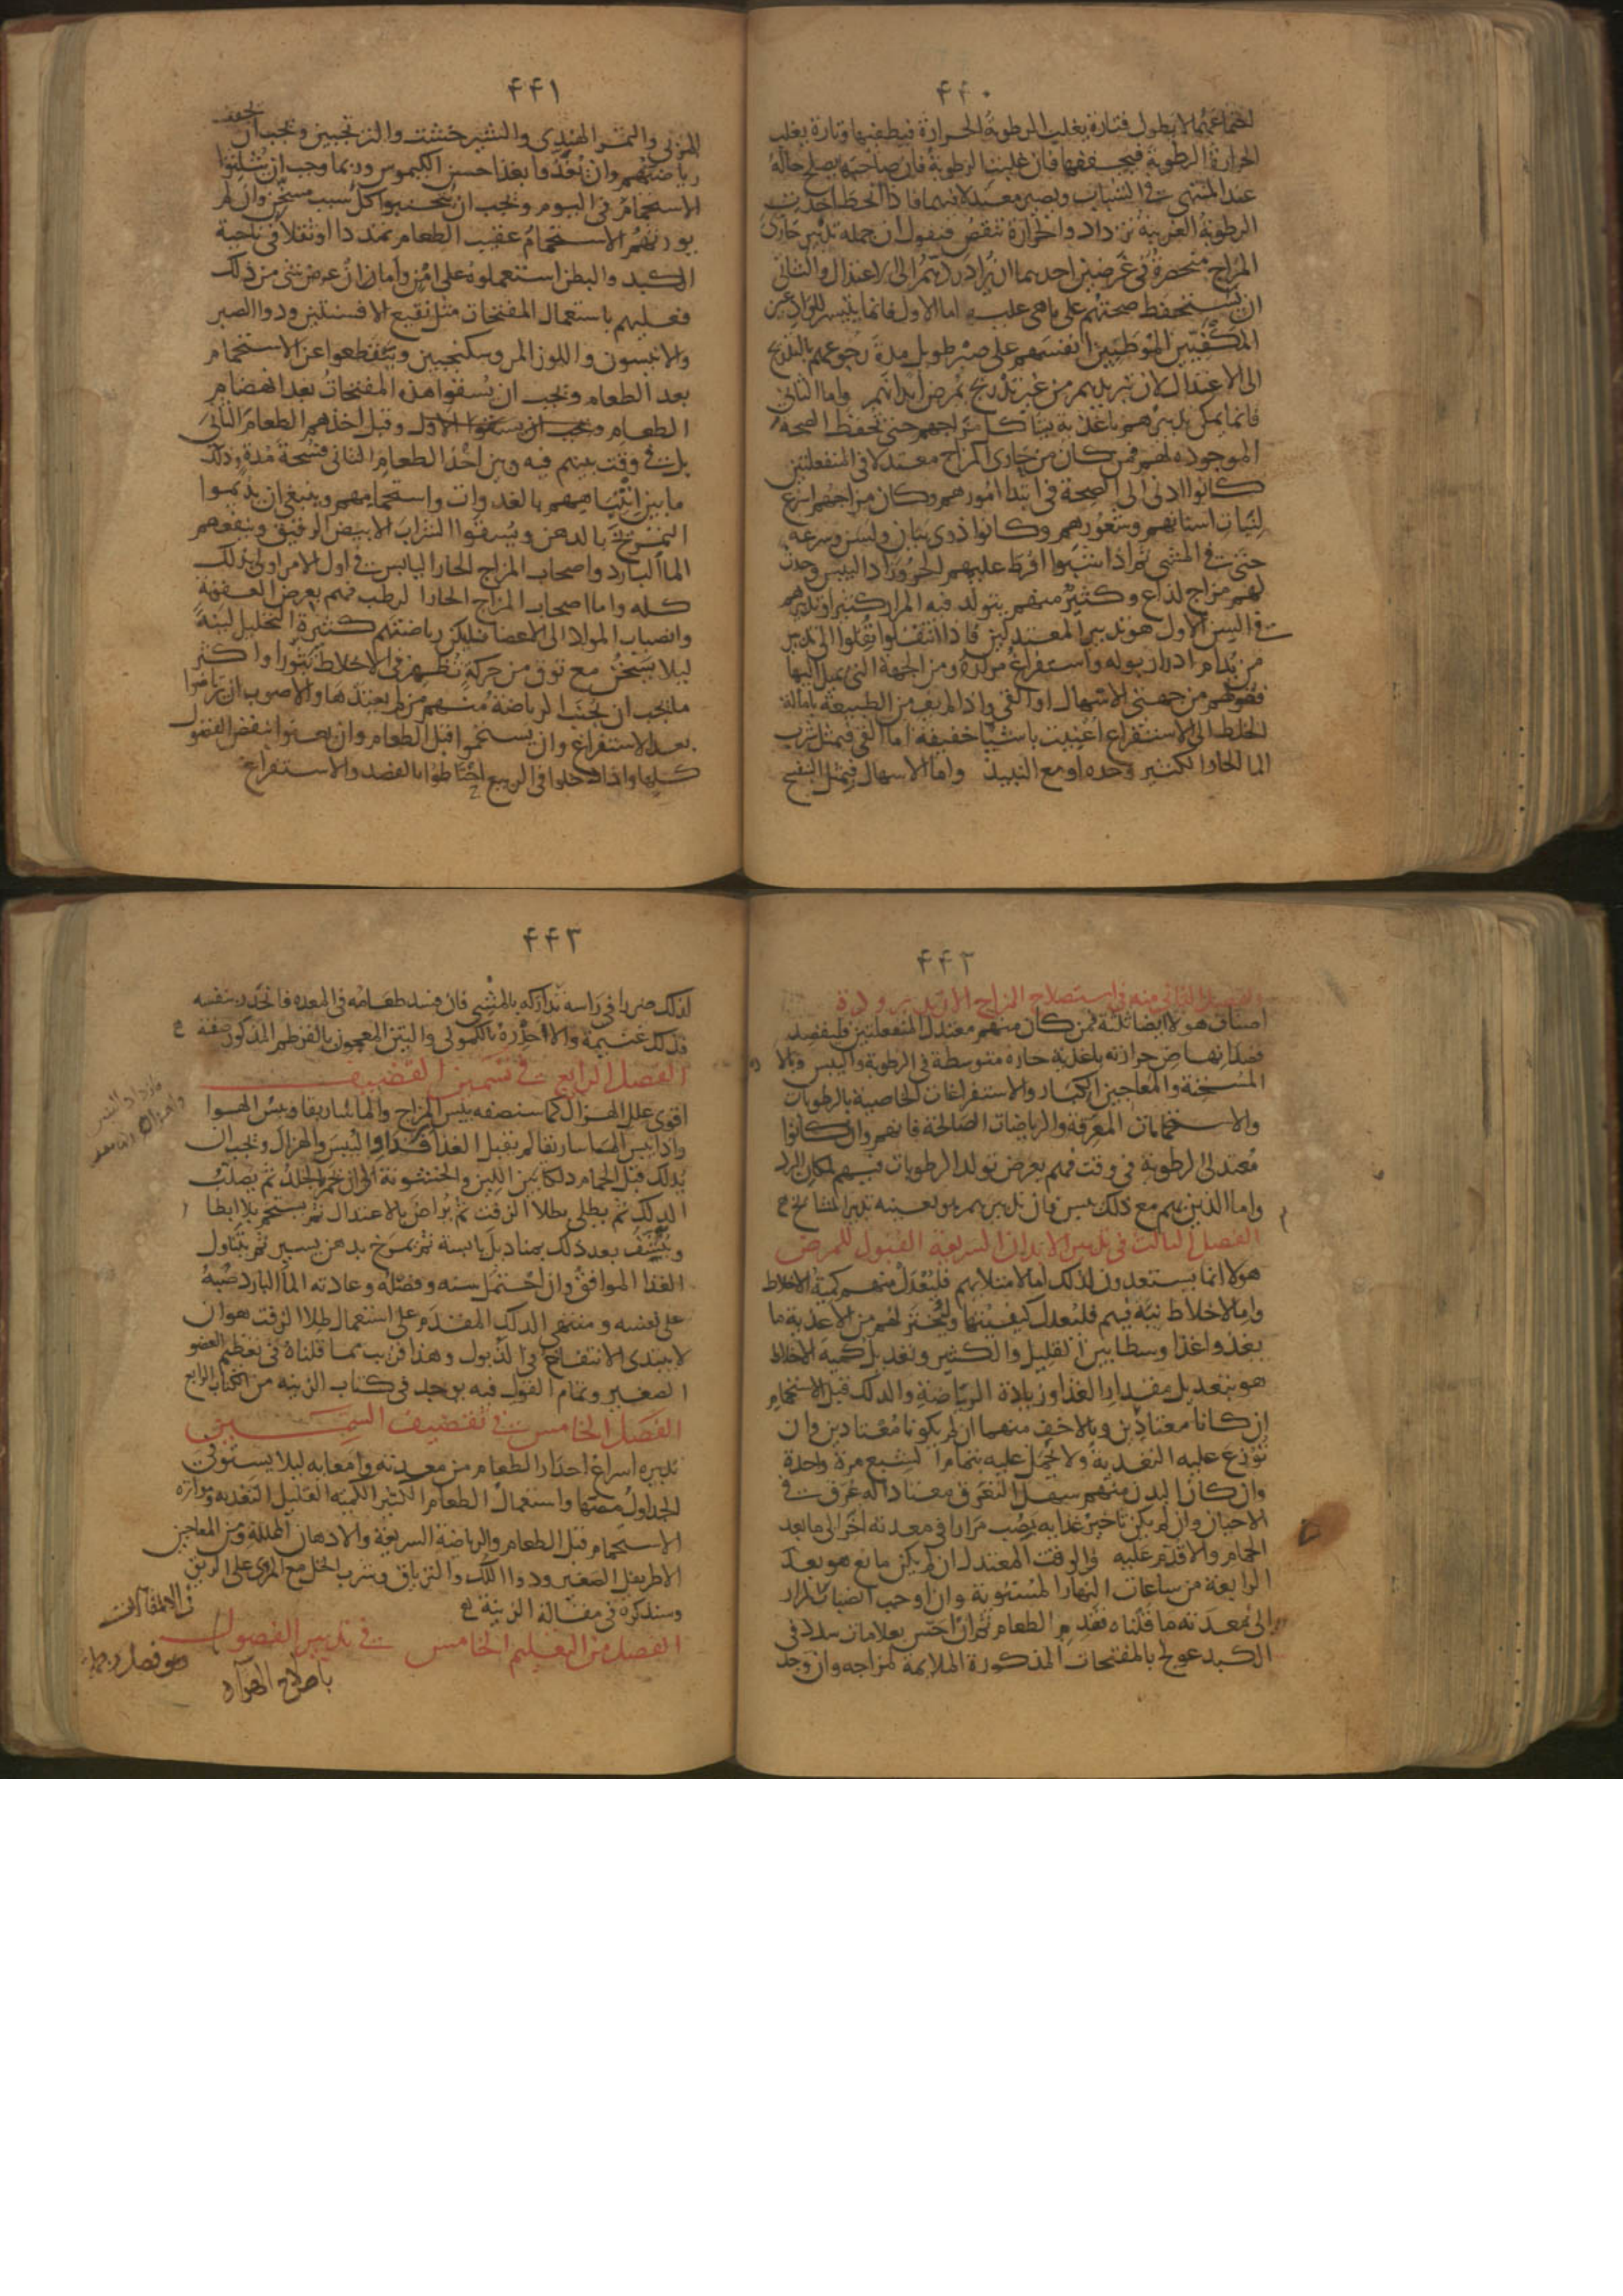 ۴۴۰
اجتماعهما لا يطول فتارة يغلب الرطوبة الحرارة فيطفيها وتارة يغلب
الحرارة الرطوبة فيجففها فان غلبت الرطوبة فان صاحبها يصلح حاله
عند المنتهى في الشباب ويصير معتدلا فيهما فاذا انحط اخذت
الرطوبة الغريبة تزداد والحرارة تنقص فنقول ان جملة تدبير حارى
المزاج منحصرة في غرضين احدهما ان يراد ردهم الى الاعتدال والثاني
ان يستحفظ صحتهم على ما هي عليه اما الاول فانما يتيسر للوادعين
المكفيين الموطنين انفسهم على صبر طويل مدة رجوعهم بالتدريج
الى الاعتدال لان تبريدهم من غير تدريج يمرض ابدانهم واما الثاني
فانما يمكن تدبيرهم باغذية تشاكل مزاجهم حتى تحفظ الصحة
الموجودة لهم فمن كان من حارى المزاج معتدلا في المنفعلتين
كانوا ادنى الى الصحة في ابتدا امورهم وكان مزاجهم اسرع
لنبات اسنانهم وشعورهم وكانوا ذوى بيان ولسن وسرعة
حتى في المشى ثم اذا شبوا افرط عليهم الحر وزاد اليبس وحدث
لهم مزاج لذاع وكثير منهم يتولد فيه المرار كثيرا وتدبيرهم
في السن الاول هو تدبير المعتدلين فاذا انتقلوا نقلوا الى تدبير
من يدام ادرار بوله واستفراغ مراره ومن الجهة التي تميل اليها
فضولهم من جهتي الاسهال او القي واذا لم تف من الطبيعة بامالة
الخلط الى الاستفراغ اعينت باشيا خفيفة اما القي فبمثل شرب
الما الحار الكثير وحده او مع النبيذ واما الاسهال فبمثل البنفسج
۴۴۱
المربى والتمر الهندى والشيرخشت والترنجبين ويجب ان يخفف
رياضتهم وان يغذوا بغذا حسن الكيموس وربما وجب ان يثلثوا
الاستحمام في اليوم ويجب ان يجتنبوا كل سبب مسخن وان لم
يورثهم الاستحمام عقيب الطعام تمددا او ثقلا في ناحية
الكبد والبطن استعملوه على امن وامان ان عرض شى من ذلك
فعليهم باستعمال المفتحات مثل نقيع الافسنتين ودوا الصبر
والانيسون واللوز المر وسكنجبين وينقطعوا عن الاستحمام
بعد الطعام ويجب ان يسقوا هذه المفتحات بعد انهضام
الطعام الاول وقبل اخذهم الطعام الثاني
بل في وقت بينهم فيه وبين اخذ الطعام الثاني فسحة مدة وذلك
ما بين انتباههم بالغدوات واستحمامهم وينبغي ان يديموا
التمريخ بالدهن ويسقوا الشراب الابيض الرقيق وينفعهم
الما البارد واصحاب المزاج الحار اليابس في اول الامر اولى بذلك
كله واما اصحاب المزاج الحار الرطب فهم بعرض العفونة
وانصباب المواد الى الاعضا فليكن رياضتهم كثيرة التحليل لينة
ليلا يسخن مع توق من حركة تظهر في الاخلاط بثورا واكثر
ما يجب ان يجنب الرياضة منهم من لم يعتدها والاصوب ان يرتاضوا
بعد الاستفراغ وان يستحموا قبل الطعام وان يعنوا بنفض الفضول
كلها واذا دخلوا في الربيع احتاطوا بالفصد والاستفراغ
۴۴۲
الفصل الثاني منه في استصلاح المزاج الازيد برودة
اصناف هولا ايضا ثلثة فمن كان منهم معتدل المنفعلتين فليقصد
قصد انهاض حرارته باغذية حارة متوسطة في الرطوبة واليبس وبالا
المسخنة والمعاجين الكبار والاستفراغات الخاصية بالرطوبات
والاستحمامات المعرقة والرياضات الصالحة فانهم وان كانوا
معتدلى الرطوبة في وقت فهم بعرض تولد الرطوبات فيهم لمكان البرد
واما الذين بهم مع ذلك يبس فان تدبيرهم هو بعينه تدبير المشائخ
الفصل الثالث في تدبير الابدان السريعة القبول للمرض
هولا انما يستعدون لذلك اما لامتلايهم فلتعدل منهم كمية الاخلاط
واما لاخلاط نية فيهم فلتعدل كيفيتها وليختر لهم من الاغذية ما
يغذو غذا وسطا بين القليل والكثير وتعديل كمية الاخلاط
هو بتعديل مقدار الغذا وزيادة الرياضة والدلك قبل الاستحمام
ان كانا معتادين وبالاخف منهما ان لم يكونا معتادين وان
توزع عليه التغذية ولا يحمل عليه بتمام الشبع مرة واحدة
وان كان البدن منهم سهل التعرق معتادا له عرق في
الاحيان وان لم يكن تاخير غذايه يصب مرارا في معدته اخر الى ما بعد
الحمام والا قدم عليه والوقت المعتدل ان لم يكن مانع هو بعد
الرابعة من ساعات النهار المستوية وان اوجب انصباب المرار
الى معدته ما قلناه فقدم الطعام ثم ان احس بعلامات سدد في
الكبد عولج بالمفتحات المذكورة الملايمة لمزاجه وان وجد
۴۴۳
لذلك ضررا في راسه تداركه بالمشى فان فسد طعامه في المعدة فانحدر بنفسه
فذلك غنيمة والا احدره بالكمونى والتين المعجون بالقرطم المذكور صفته
الفصل الرابع في تسمين القضيف
اقوى علل الهزال كما سنصفه يبس المزاج والماساريقا ويبس الهوا
واذا يبس الماساريقا لم تقبل الغذا فتداوا اليبس والهزال ويجب ان
يدلك قبل الحمام دلكا بين اللين والخشونة الى ان يحمر الجلد ثم يصلب
الدلك ثم يطلى بطلا الزفت ثم يراض بالاعتدال ثم يستحم بلا ابطا
وينشف بعد ذلك بمناديل يابسة ثم يمرخ بدهن يسير ثم يتناول
الغذا الموافق وان احتمل سنه وفصله وعادته الما البارد صبه
على نفسه ومنتهى الدلك المقدم على استعمال طلا الزفت هو ان
لا يبتدى الانتفاخ في الذبول وهذا قريب مما قلناه في تعظيم العضو
الصغير وتمام القول فيه يوجد في كتاب الزينة من الكتاب الرابع
الفصل الخامس في تقضيف السمين
تدبيره اسراع احدار الطعام من معدته وامعايه ليلا يستوفي
الجداول مصها واستعمال الطعام الكثير الكمية القليل التغذية وتواتره
الاستحمام قبل الطعام والرياضة السريعة والادهان المحللة ومن المعاجين
الاطريفل الصغير ودوا اللك والترياق وشرب الخل مع المرى على الريق
وسنذكره في مقالة الزينة
الفصل من التعليم الخامس في تدبير الفصول